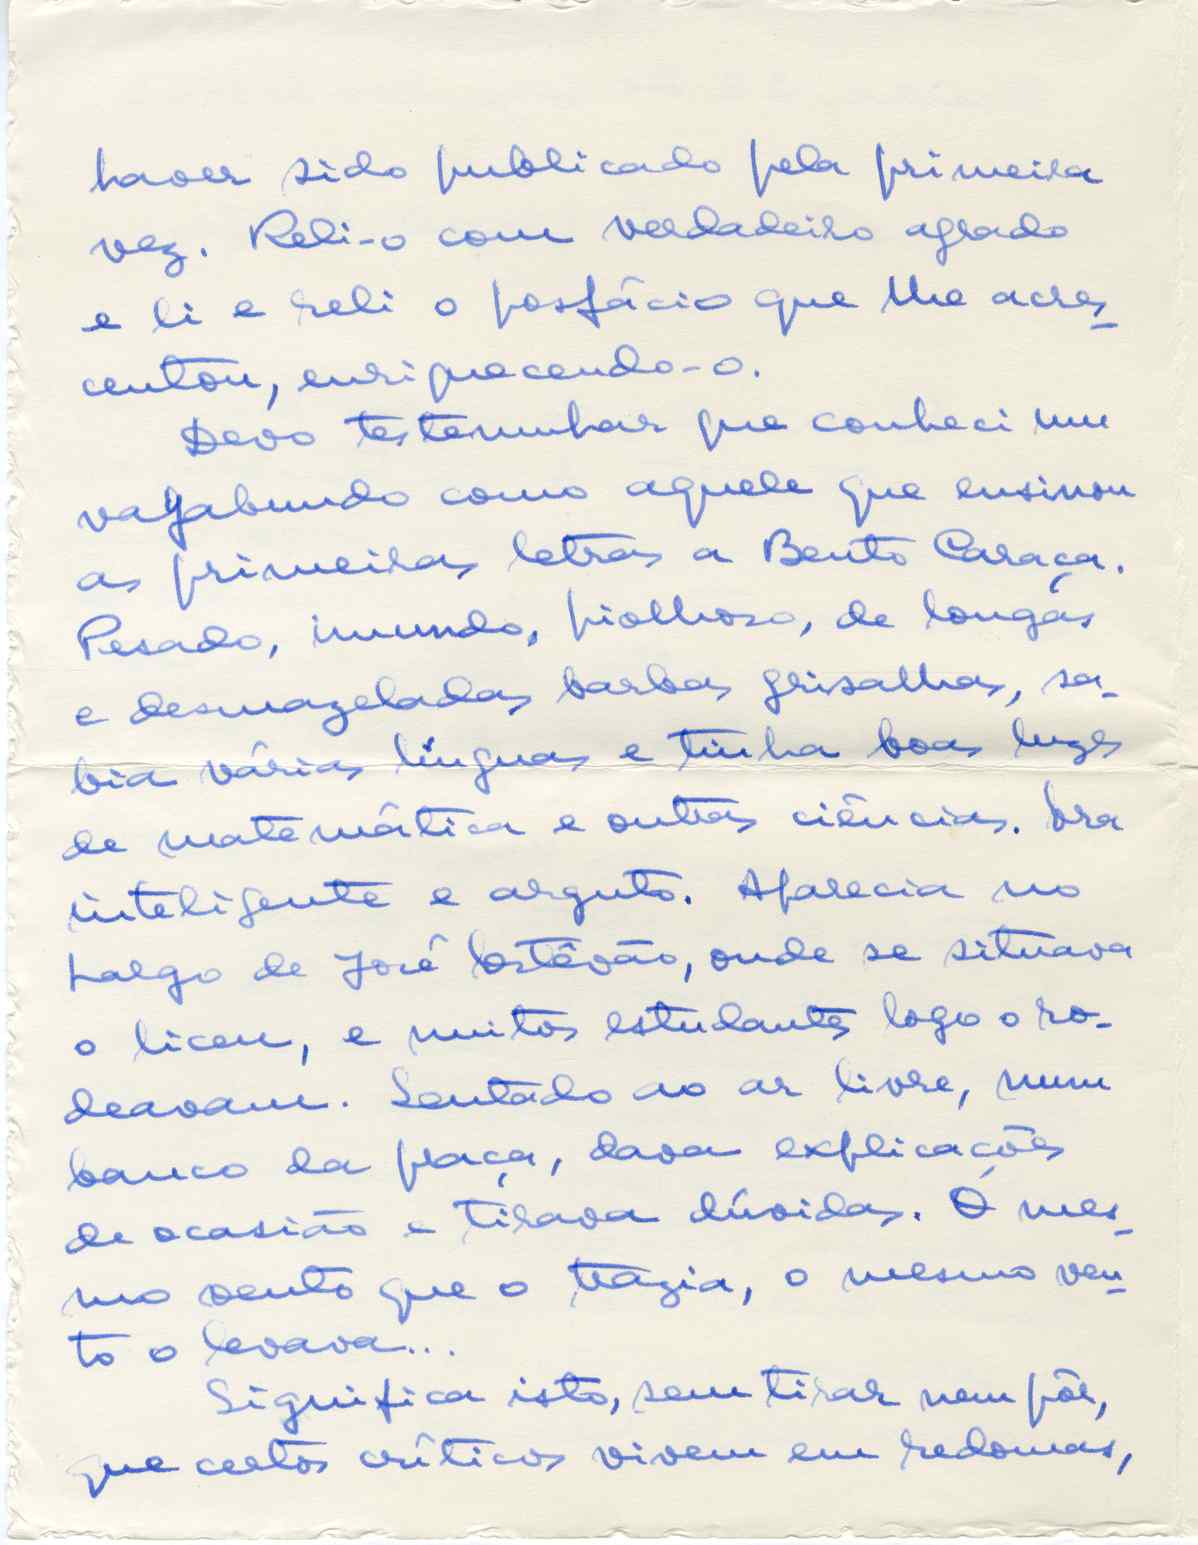 haver sido publicado pela primeira
vez. Reli-o com verdadeiro agrado
e li e reli o posfácio que lhe acres-
centou, enriquecendo-o.
Devo testemunhar que conheci um
vagabundo como aquele que ensinou
as primeiras letras a Bento Caraça.
Pesado, imundo, piolhoso, de longas
e desmazeladas barbas grisalhas, sa-
bia várias línguas e tinha boas luzes
de matemática e outras ciências. Era
inteligente e arguto. Aparecia no
Largo de José Estêvão, onde se situava
o liceu, e muitos estudantes logo o ro-
deavam. Sentado ao ar livre, num
banco da praça, dava explicações
de ocasião e tirava dúvidas. O mes-
mo vento que o trazia, o mesmo ven-
to o levava...
Significa isto, sem tirar nem pôr,
que certos críticos vivem em redomas,